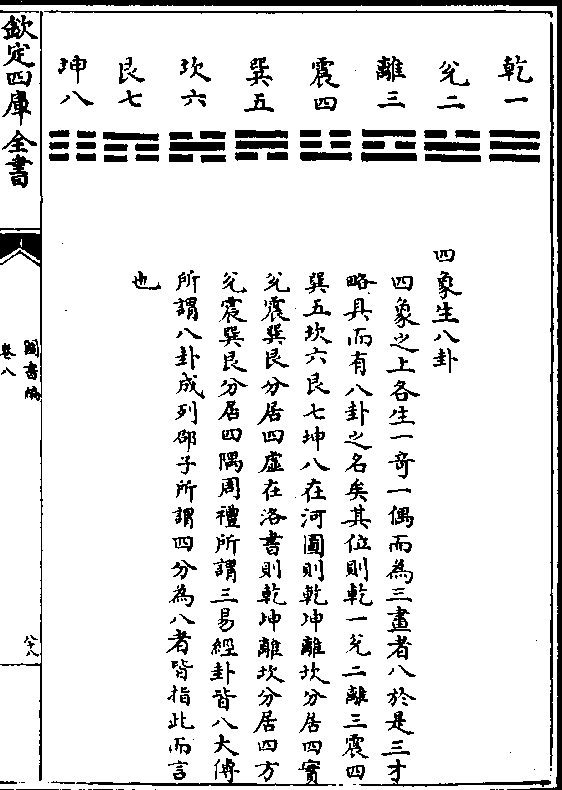 乾一
兌二
離三
震四
巽五
坎六
艮七
坤八
四象生八卦
四象之上各生一奇一偶而為三畫者八於是三才
略具而有八卦之名矣其位則乾一兌二離三震四
巽五坎六艮七坤八在河圖則乾坤離坎分居四實
兌震巽艮分居四虛在洛書則乾坤離坎分居四方
兌震巽艮分居四隅周禮所謂三易經卦皆八大傳
所謂八卦成列邵子所謂四分為八者皆指此而言
也
欽定四庫全書
圖書編
卷八
六八